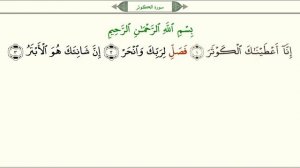 سورة الكوثر
بِسْمِ ٱللَّهِ ٱلرَّحْمَٰنِ ٱلرَّحِيمِ
إِنَّآ أَعْطَيْنَٰكَ ٱلْكَوْثَرَ ۝١ فَصَلِّ لِرَبِّكَ وَٱنْحَرْ ۝٢ إِنَّ شَانِئَكَ هُوَ ٱلْأَبْتَرُ ۝٣